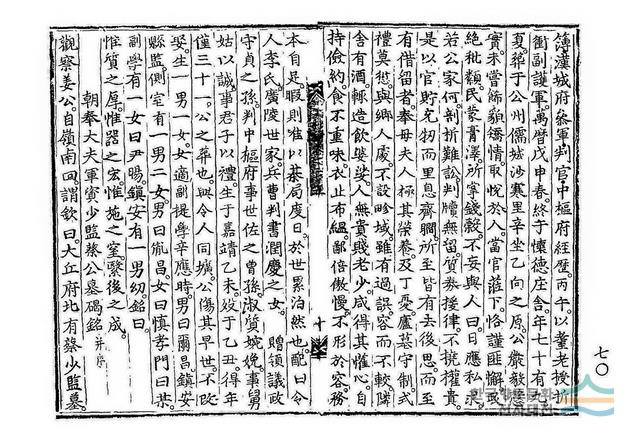 簿漢城府參軍判官中樞府經歷丙午以耋老授折
衝副護軍萬曆戊申春終于懷德庄舍年七十有
夏葬于公州儒城沙寒里辛坐乙向之原公嚴毅
實未嘗餙貌矯情取悅於人當官莅下恪謹匪解
絶秕纇民蒙膏澤所掌錢穀不妄與人曰日應私
若公家何剖折難訟判牘無留質券援律不撓權貴
是以官貯充牣而里息齊謌所至皆有去後思而至
有借留者奉母夫人極其榮養及丁憂廬墓守制式
禮莫愆與鄕人處不設畛域雖有過誤容而不較隣
舍有酒輒造飮婆娑人無貴賤老少咸得其懽心自
持儉約食不重味衣止布縕鄙倍傲慢不形於容務
本自足暇則惟以碁局度日於世累泊然也配曰令
人李氏廣陵世家兵曹判書潤慶之女 贈領議政
守貞之孫判中樞府事世佐之曾孫淑質婉娩事舅
姑以誠事君子以禮生于嘉靖乙未歿于乙丑得年
僅三十一公之葬也與令人同壙公傷其早世不改
娶生一男一女女適副提學辛應時男曰爾昌鎭安
縣監側室有一男二女男曰胤昌女曰愼孝門曰
副學有一女曰尹暘鎭安有一男幼銘曰
惟質之厚惟器之宏惟施之窒繄後之成
朝奉大夫軍資少監蔡公墓碣銘 幷序
觀察姜公自嶺南回謂欽曰大丘府北有蔡少監墓
十
七〇